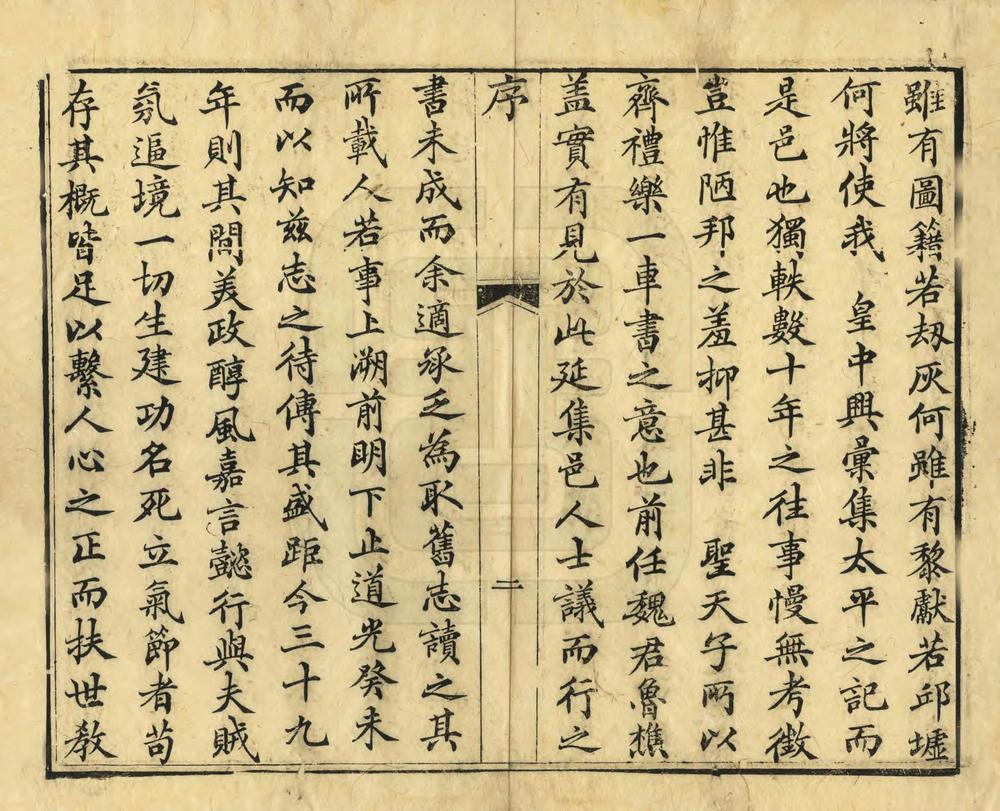 雖有圖籍若刼灰何雖有黎獻若邱墟
何將使我　皇中興彙集太平之記而
是邑也獨軼數十年之往事慢無考徵
豈惟陋邦之羞抑甚非　聖天子所以
齊禮樂一車書之意也前任魏君魯樵
盖實有見於此延集邑人士議而行之
序
二
書未成而余適承乏為取舊志讀之其
所載人若事上溯前明下止道光癸未
而以知茲志之待傳其盛距今三十九
年則其間美政醇風嘉言懿行與夫賊
氛逼境一切生建功名死立氣節者苟
存其概皆足以繫人心之正而扶世教